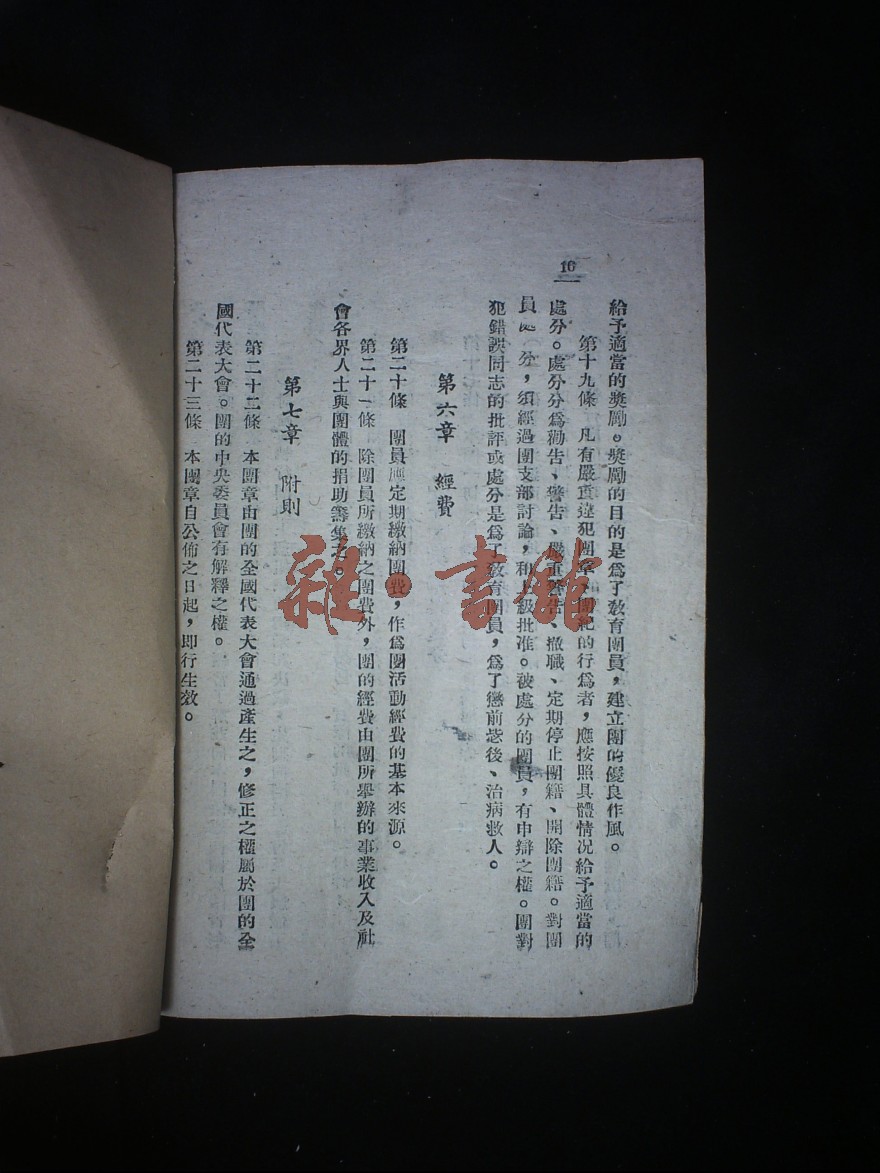 16
給予適當的獎勵。獎勵的目的是爲了敎育團員，建立團的優良作風。
第十九條　凡有嚴重違犯團章、團紀的行爲者，應按照具體情況給予適當的
處分。處分分爲勸告、警告、嚴重警告、撤職、定期停止團籍、開除團籍。對團
員處分，須經過團支部討論，和上級批准。被處分的團員，有申辯之權。團對
犯錯誤同志的批評或處分是爲了敎育團員，爲了懲前毖後、治病救人。
第六章　經費
第二十條　團員應定期繳納團費，作爲團活動經費的基本來源。
第二十一條　除團員所繳納之團費外，團的經費由團所舉辦的事業收入及社
會各界人士與團體的捐助籌集之。
第七章　附則
第二十二條　本團章由團的全國代表大會通過產生之，修正之權屬於團的全
國代表大會。團的中央委員會有解釋之權。
第二十三條　本團章自公佈之日起，即行生效。
雜·書館